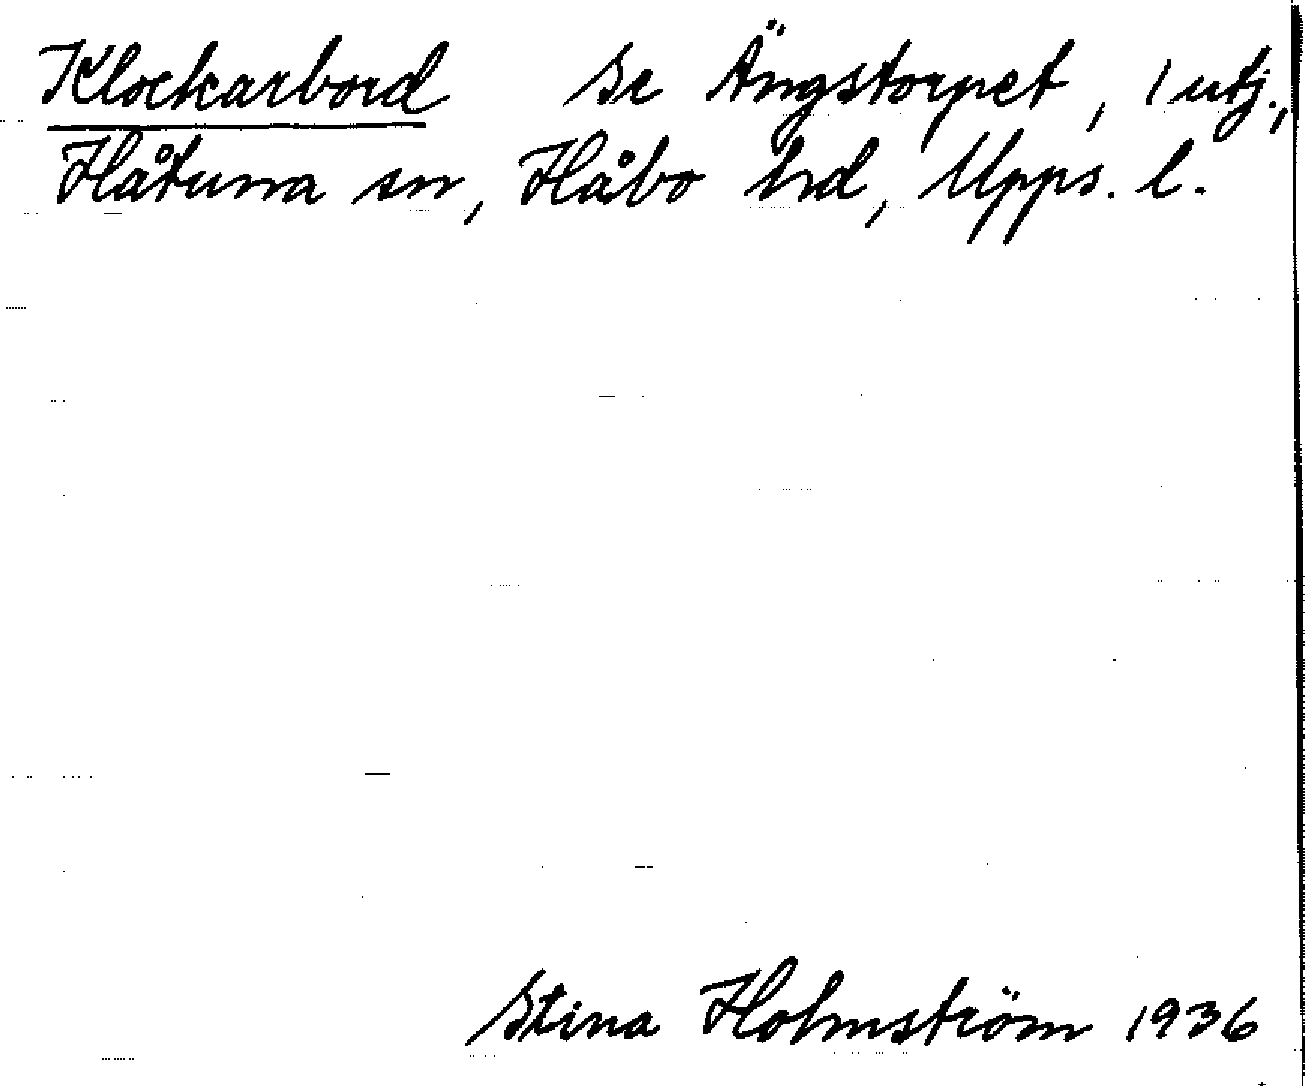 Klockarbord Se Ängstorpet, 1 utj.,
Håtuna sn, Håbo hd, Upps. l.
Stina Holmström 1936